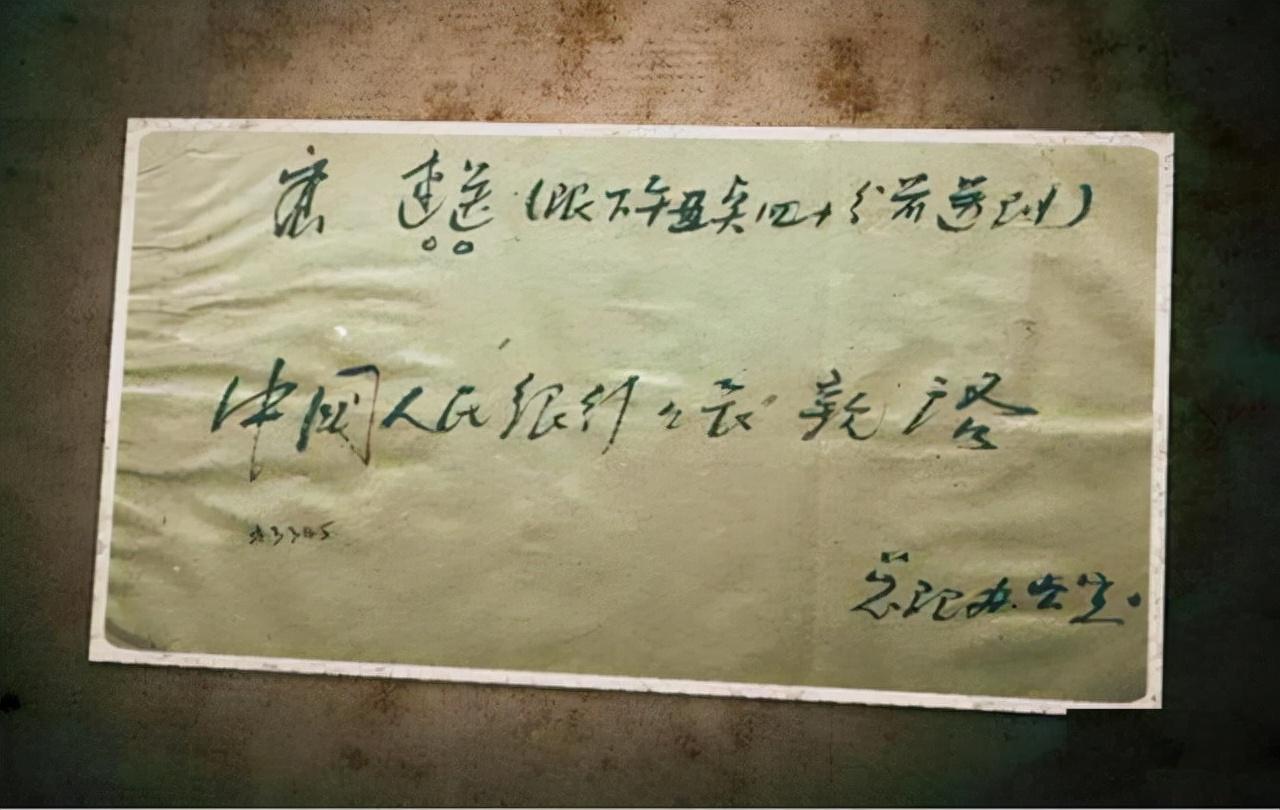 速送(限下午五点四十分前送到)
中国人民银行々長 親启
总理办公室.